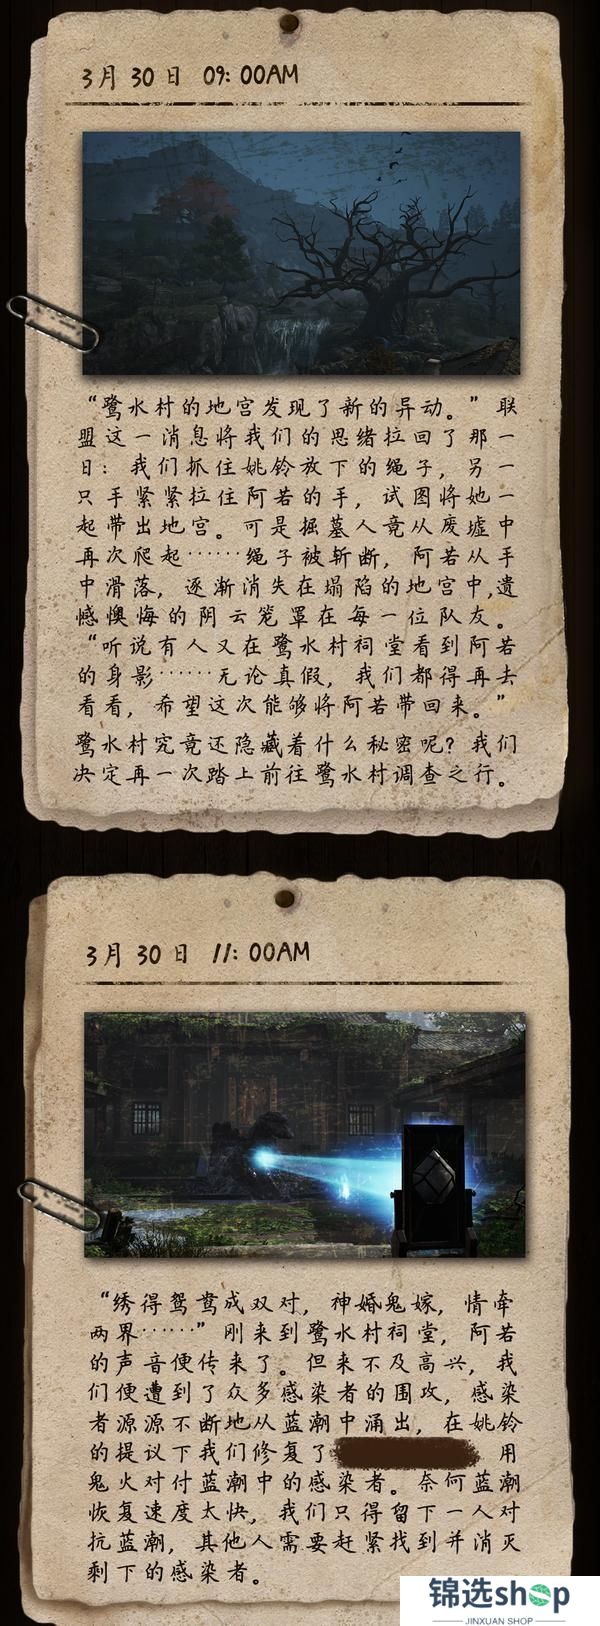 3月30日 09:00AM
“鹭水村的地宫发现了新的异动。”联
盟这一消息将我们的思绪拉回了那一
日：我们抓住姚铃放下的绳子，另一
只手紧紧拉住阿若的手，试图将她一
起带出地宫。可是掘墓人竟从废墟中
再次爬起……绳子被斩断，阿若从手
中滑落，逐渐消失在塌陷的地宫中,遗
憾懊悔的阴云笼罩在每一位队友。
“听说有人又在鹭水村祠堂看到阿若
的身影……无论真假，我们都得再去
看看，希望这次能够将阿若带回来。”
鹭水村究竟还隐藏着什么秘密呢？我们
决定再一次踏上前往鹭水村调查之行。
3月30日 11:00AM
“绣得鸳鸯成双对，神婚鬼嫁，情牵
两界……”刚来到鹭水村祠堂，阿若
的声音便传来了。但来不及高兴，我
们便遭到了众多感染者的围攻，感染
者源源不断地从蓝潮中涌出，在姚铃
的提议下我们修复了 用
鬼火对付蓝潮中的感染者。奈何蓝潮
恢复速度太快，我们只得留下一人对
抗蓝潮，其他人需要赶紧找到并消灭
剩下的感染者。
锦选shop
JINXUAN SHOP